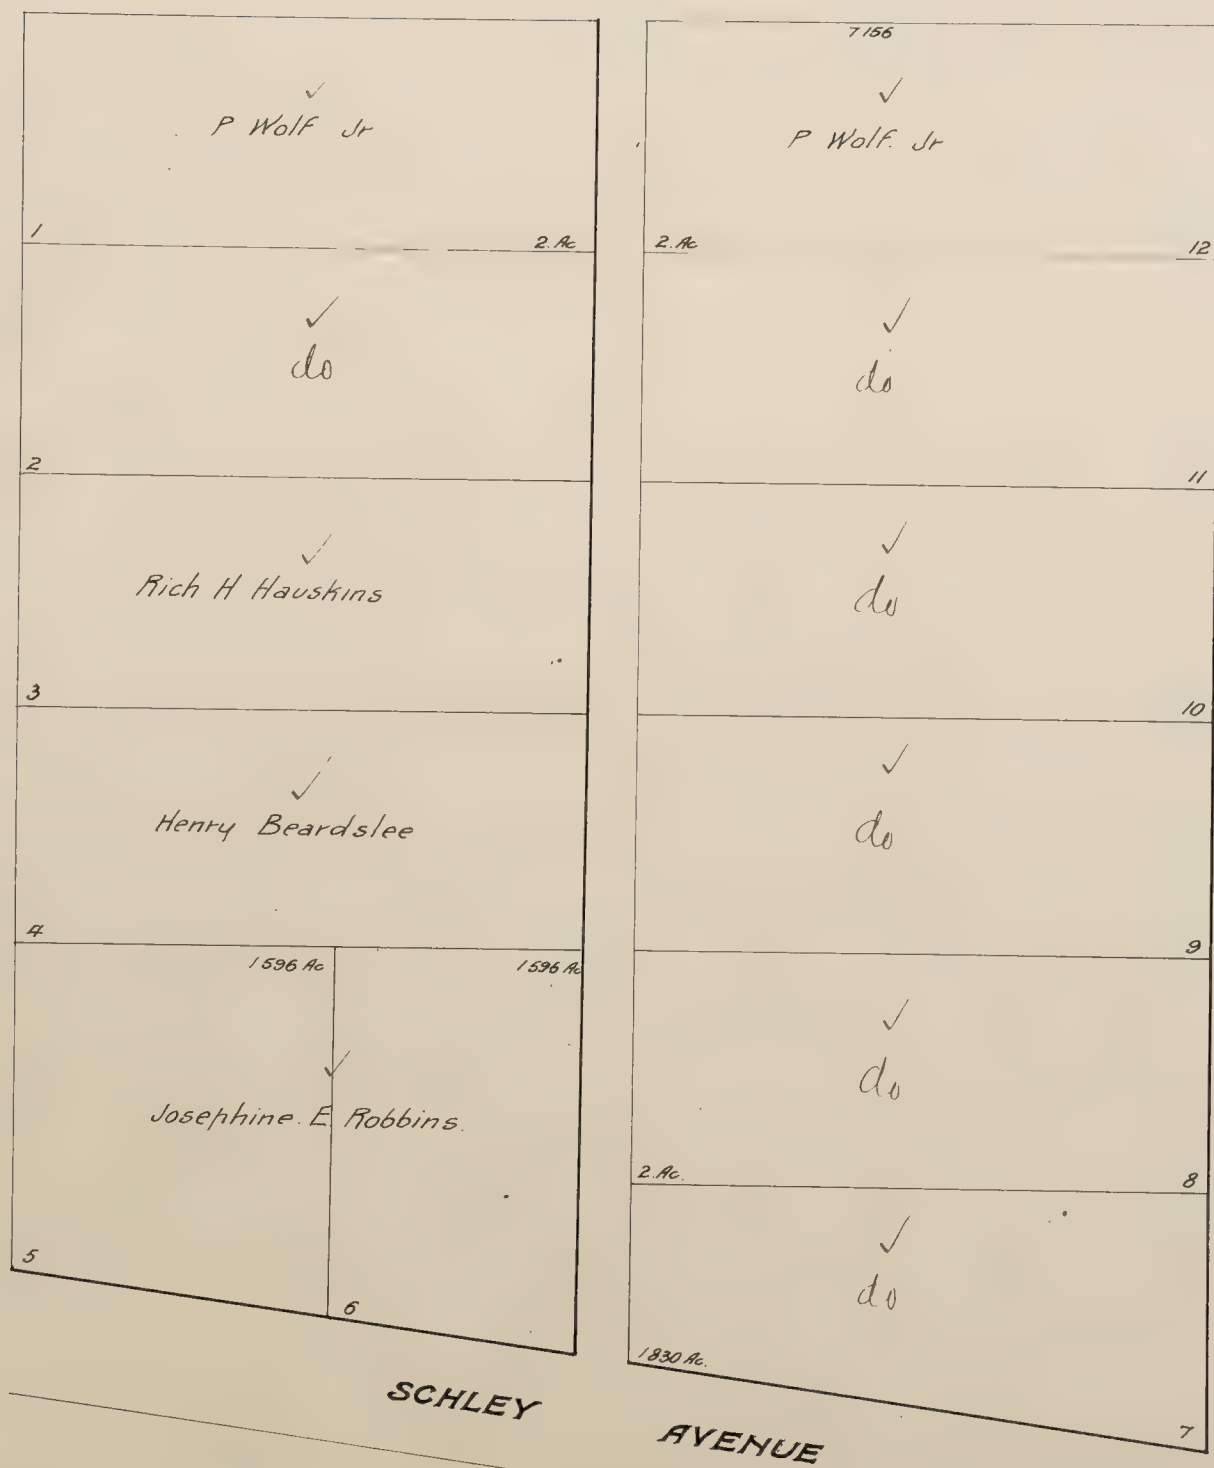 P Wolf Jr
1
2. Ac
do
2
Rich H Hauskins
3
Henry Beardslee
4
1596 Ac
1596 Ac
Josephine. E. Robbins.
5
6
7156
P Wolf. Jr
2. Ac
12
do
11
do
10
do
9
do
2. Ac.
8
do
1830 Ac.
7
SCHLEY AVENUE